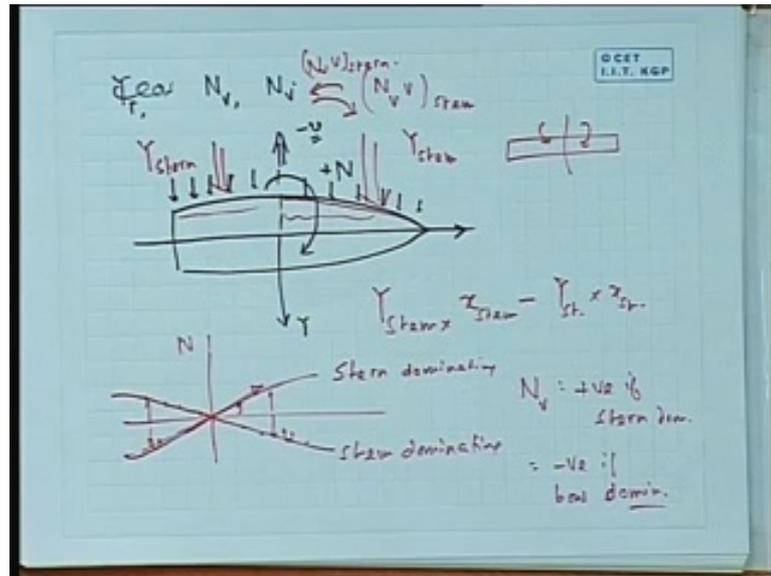 (N_v v)_stern.
N_v, N_v̇ (N_v v)_stem
© CET
I.I.T. KGP
-v
Y_stern Y_stem
+N
Y
Y_stem × x_stem - Y_st. × x_st.
N
Stern dominating
Stem dominating
N_v = +ve if
Stern dom.
= -ve if
bow domin.